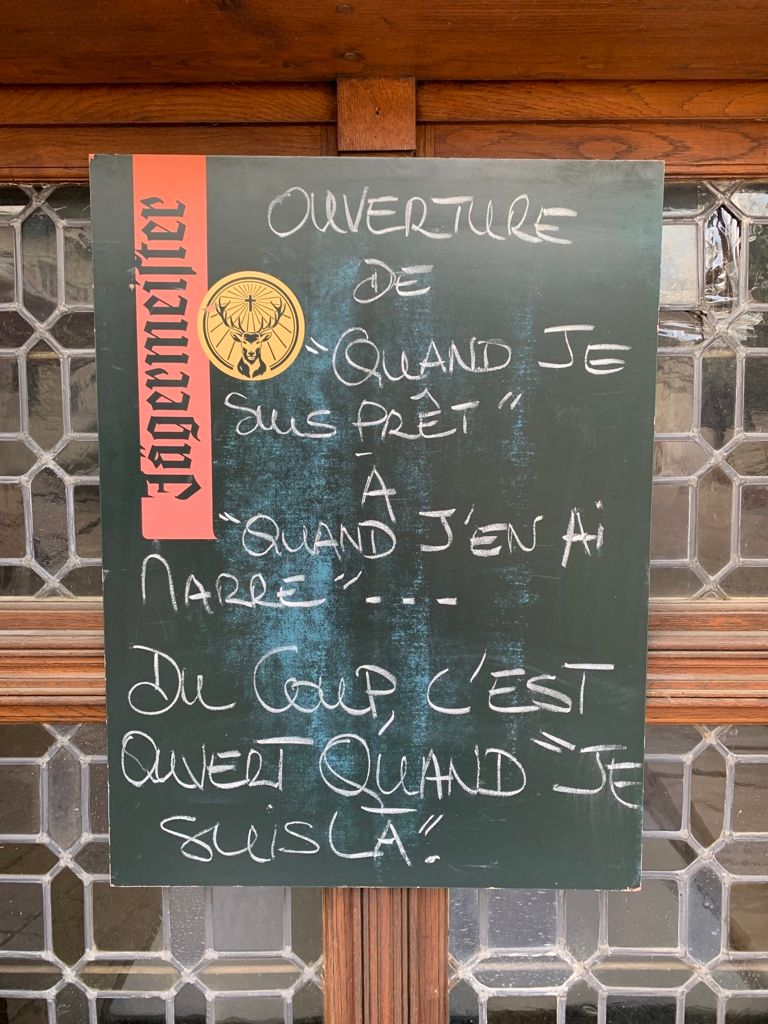 Jägermeister
OUVERTURE
DE
"QUAND JE
SUIS PRÊT"
À
"QUAND J'EN AI
MARRE"---
DU COUP, C'EST
OUVERT QUAND "JE
SUIS LÀ".